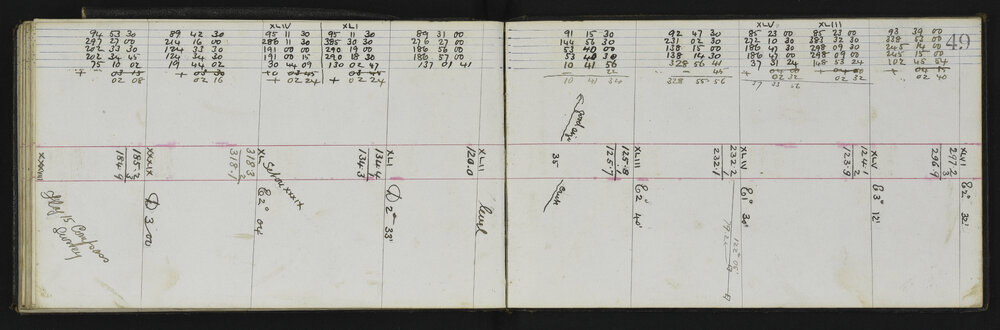 XLIV XLI
94 53 30 89 42 30 95 11 30 95 11 30 89 31 00
297 27 00 214 16 00 286 11 30 385 30 30 276 27 00
202 33 30 124 33 30 191 00 00 290 19 00 186 56 00
202 34 45 124 34 30 191 00 15 290 18 30 186 57 00
75 10 02 19 44 02 30 44 09 130 02 47 137 01 41
+ 03 15 + 03 30 +0 03 45 03 45
02 08 02 16 + 02 24 + 02 24
XXXVIII
184.9
185.2
3
XXXIX
318.1
318.3
XL
134.3
134.4
XLI
120.0
XLII
Stn XXXIX
D 3 00
E2° 04
D 2° 33'
level
Compass
Survey
XLV XLIII
49
91 15 30 92 47 30 85 23 00 85 23 00 93 39 00
144 56 30 231 02 30 272 10 30 383 32 30 338 53 00
53 40 00 138 15 00 186 47 30 298 09 30 245 14 00
53 40 30 138 14 30 186 47 00 298 09 00 245 15 00
10 41 56 328 56 41 37 31 24 148 53 24 102 45 54
22 45
10 41 34 328 55 56 02 32 02 32 02 40
35
Bush
125.7
125.8
XLIII
E2° 40'
232.1
232.2
XLIV
E1° 30'
123.9
124.1
XLV
E3° 12'
296.9
297.2
3
XLVI
E2° 32'
122° 05'